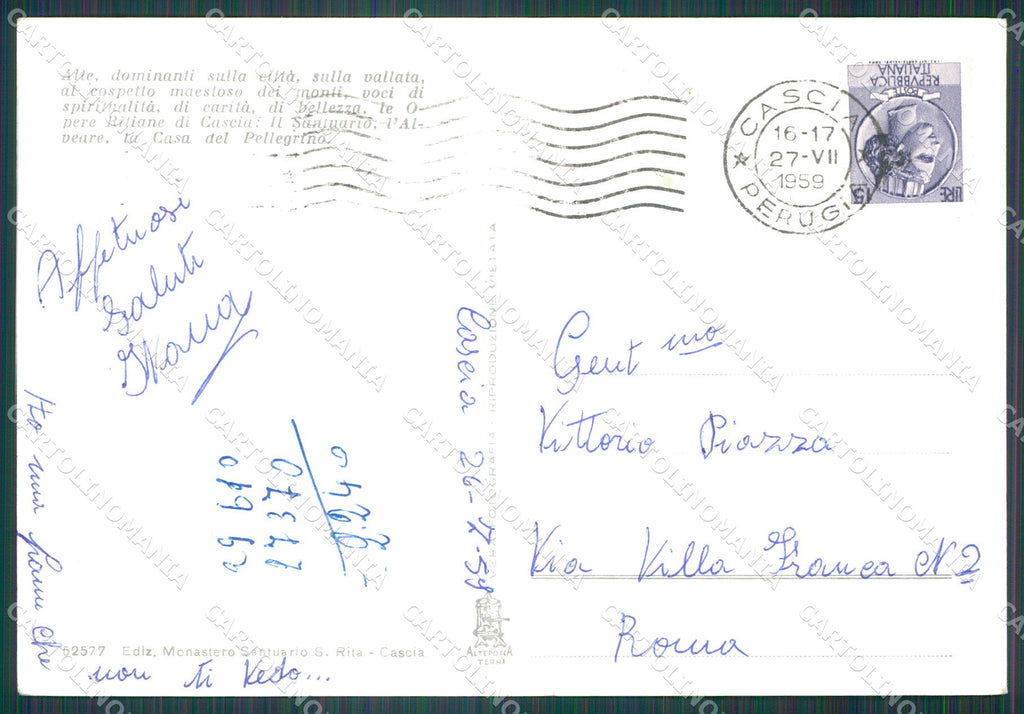 Alte, dominanti sulla città, sulla vallata,
al cospetto maestoso dei monti, voci di
spiritualità, di carità, di bellezza, le O-
pere Ritiane di Cascia: Il Santuario, l'Al-
veare, la Casa del Pellegrino.
CASCIA
16-17
27-VII
1959
PERUGIA
POSTE
REPVBBLICA
ITALIANA
LIRE 15
Affettuosi
Saluti
Ho una fame che
non ti vedo...
Cascia 26-
RIPRODUZIONE VIETATA
Gent mo
Vittorio Piazza
Via Villa Franca N 2
Roma
52577 Ediz. Monastero Santuario S. Rita - Cascia
ALTEROCCA
TERNI
CARTOLINOMANIA